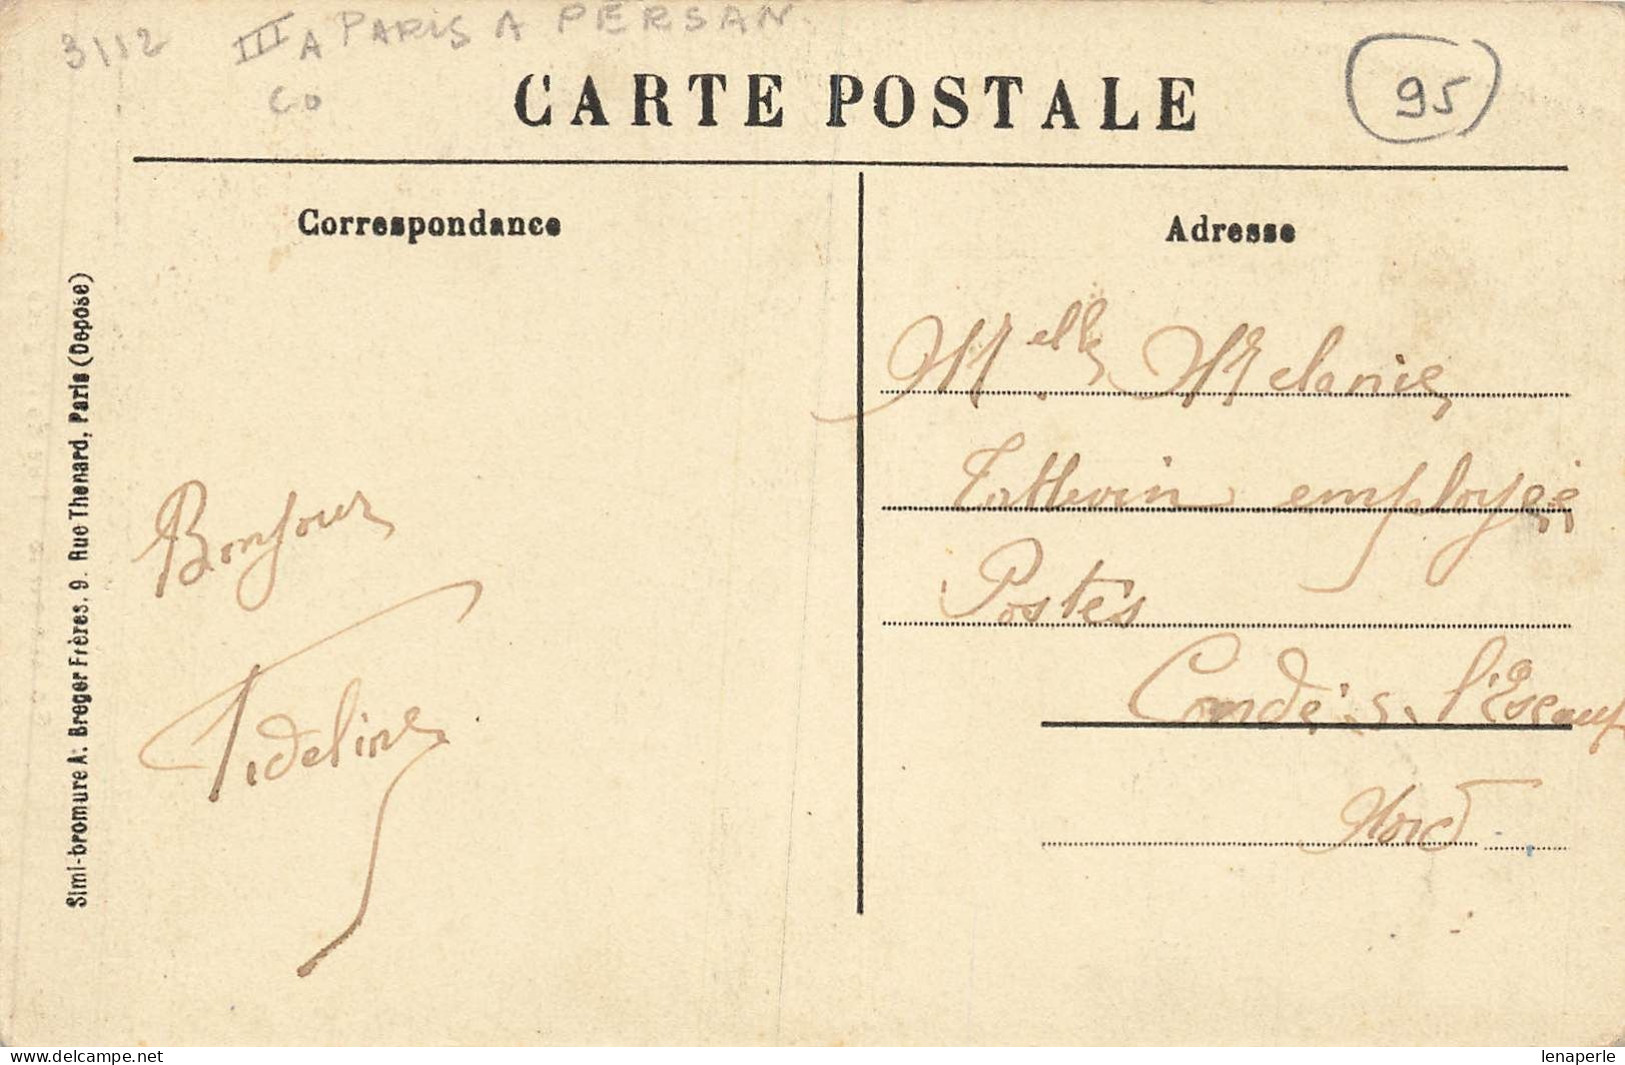 3112 III A PARIS A PERSAN
CO
95
CARTE POSTALE
Correspondance
Adresse
Simi-bromure A. Breger Frères, 9. Rue Thenard, Paris (Deposé)
Bonjour
Fideline
Melle Melanie
employée
Postes
Condé s. l'Escaut
Nord
www.delcampe.net
lenaperle